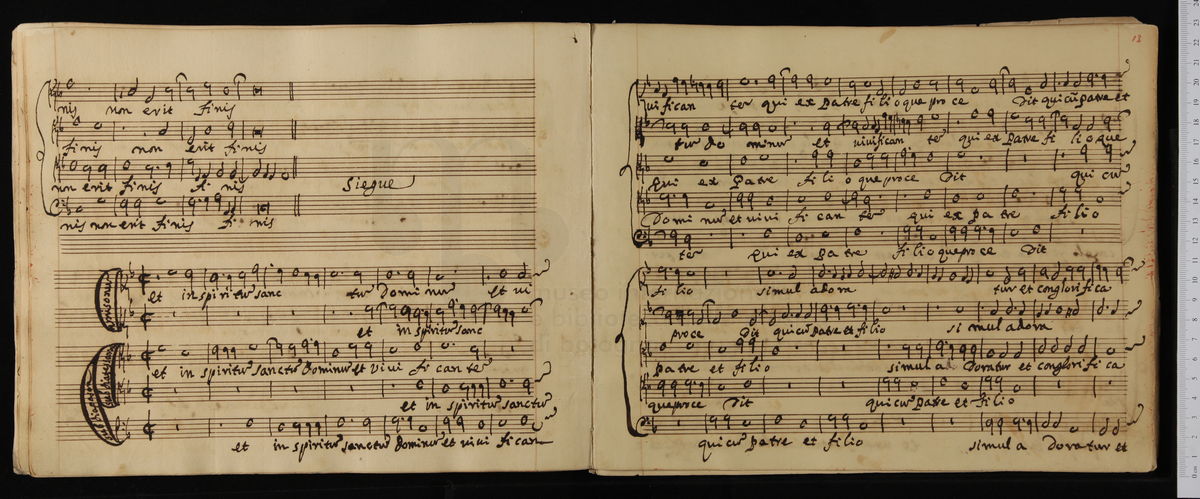 nis non erit finis
finis non erit finis
non erit finis fi nis
Siegue
nis non erit finis fi nis
et in spiritũ sanc tũ dominũ et vi
et in spiritũ sanc
et in spiritũ sanctũ Dominũ et vivi fi cantẽ
et in spiritũ sanctũ
et in spiritũ sanctũ Dominũ et vivi fi can
13
vifican tẽ qui ex Patre filioque pro ce dit qui cũ patre et
tũ do minũ et vivifican tẽ qui ex Patre fi lioque
qui ex Patre fi li o que proce dit qui cũ
Dominũ et vivi fi can tẽ qui ex pa tre filio
tẽ qui ex pa tre filioqueproce dit
fi lio simul adora tur et conglorifica
proce dit qui cũ Patre et filio si mul adora
patre et filio simul a doratur et conglorifi ca
queproce dit qui cũ Patre et filio
qui cũ Patre et filio simul a doratur et